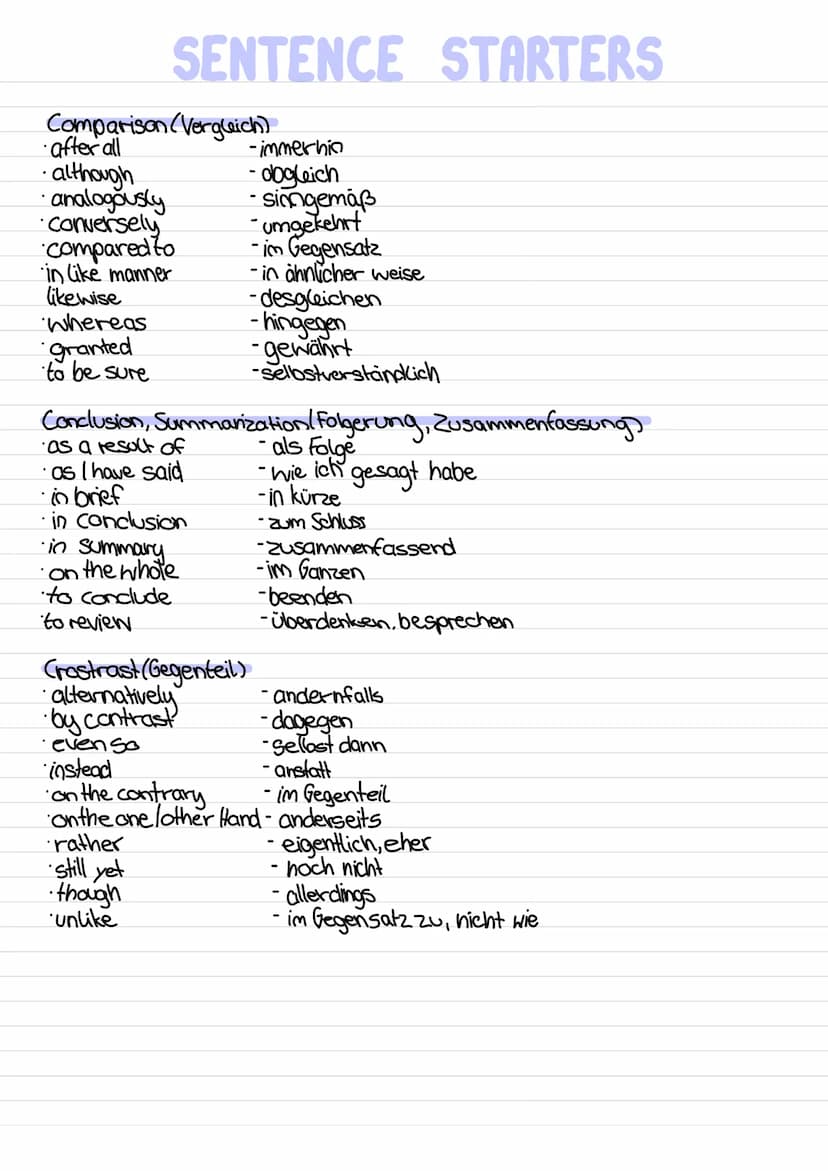 SENTENCE STARTERS
Comparison (Vergleich)
· after all - immerhin
· although - obgleich
· analogously - sinngemäß
· conversely - umgekehrt
· compared to - im Gegensatz
· in like manner - in ähnlicher weise
likewise - desgleichen
· whereas - hingegen
· granted - gewährt
· to be sure - selbstverständlich
Conclusion, Summarization (Folgerung, Zusammenfassung)
· as a result of - als Folge
· as I have said - wie ich gesagt habe
· in brief - in kürze
· in conclusion - zum Schluss
· in summary - zusammenfassend
· on the whole - im Ganzen
· to conclude - beenden
· to review - überdenken, besprechen
Crastrast (Gegenteil)
· alternatively - andernfalls
· by contrast - dagegen
· even so - selbst dann
· instead - anstatt
· on the contrary - im Gegenteil
· on the one/other Hand - anderseits
· rather - eigentlich, eher
· still yet - noch nicht
· though - allerdings
· unlike - im Gegensatz zu, nicht wie